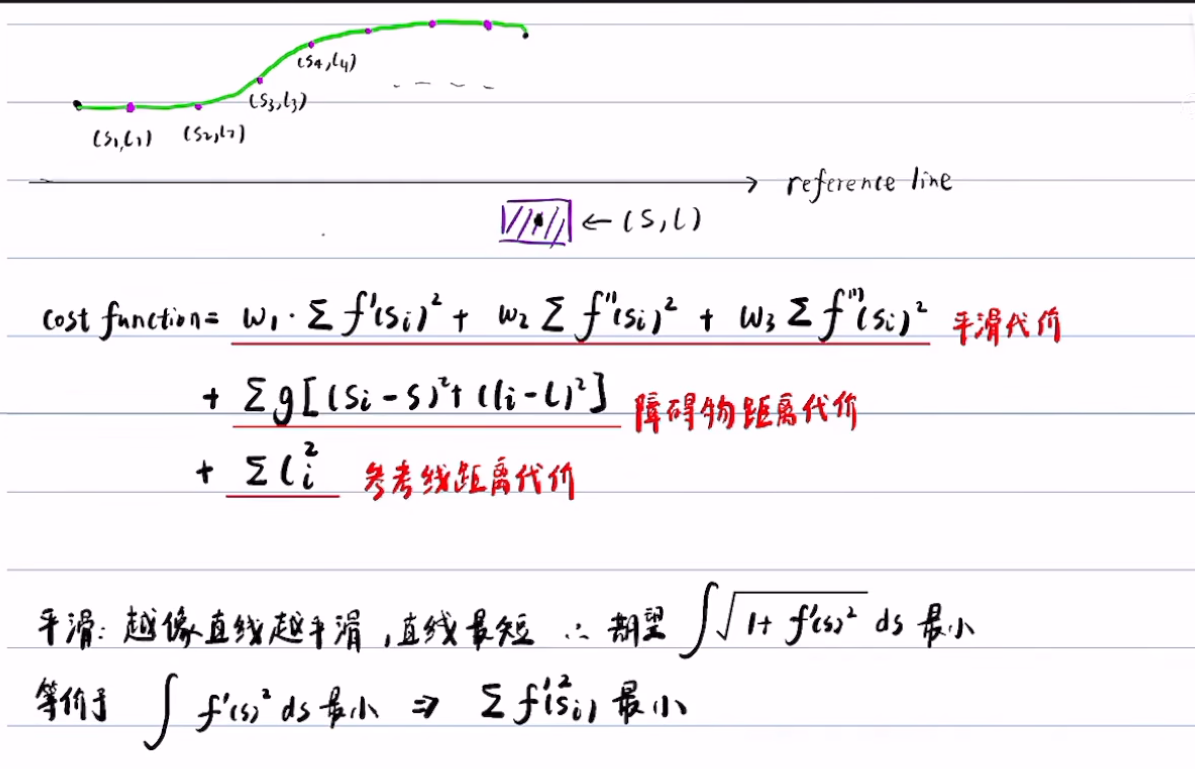 (S4,l4)
(S3,l3)
(S1,l1) (S2,l2)
reference line
← (S,l)
cost function = w₁·Σf'(si)² + w₂Σf''(si)² + w₃Σf'''(si)² 平滑代价
+ Σg[(si-s)²+(li-l)²] 障碍物距离代价
+ Σli² 参考线距离代价
平滑: 越像直线越平滑,直线最短 ∴ 期望 ∫√(1+f'(s)²) ds 最小
等价于 ∫f'(s)² ds 最小 ⇒ Σf'²(si) 最小